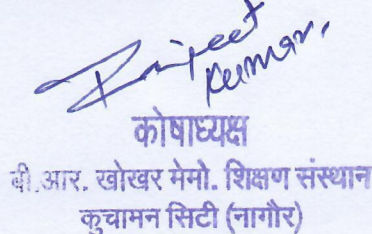 Ranjeet
Kumar
कोषाध्यक्ष
बी.आर. खोखर मेमो. शिक्षण संस्थान
कुचामन सिटी (नागौर)